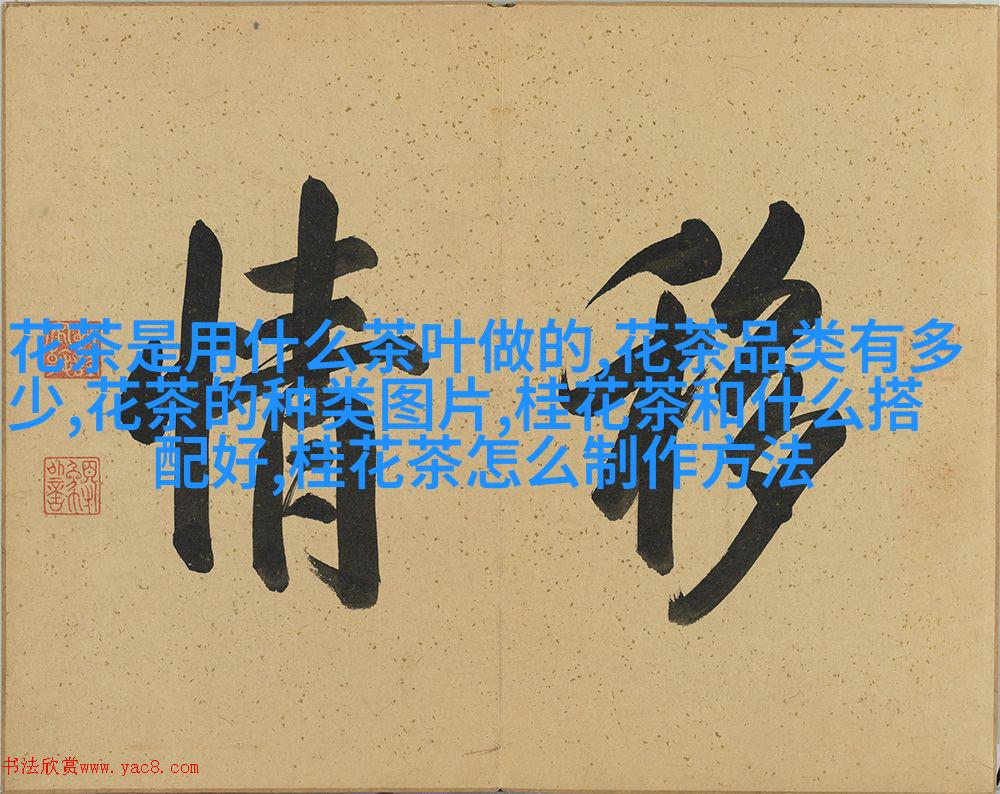 移情
花茶是用什么茶叶做的,花茶品类有多
少,花茶的种类图片,桂花茶和什么搭
配好,桂花茶怎么制作方法
书法欣赏www.yac8.com